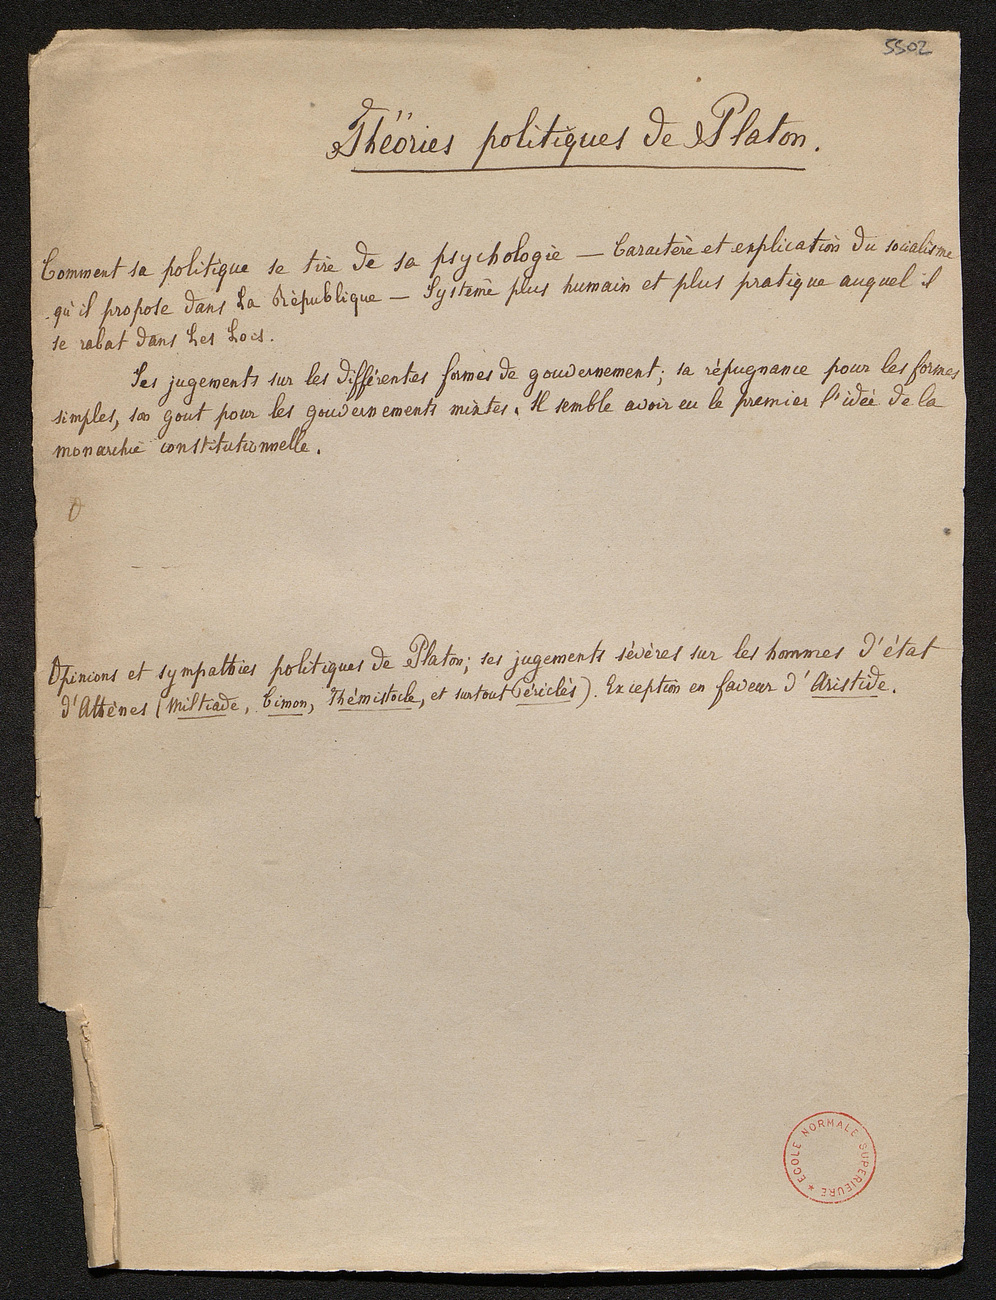 5502
Théories politiques de Platon.
Comment sa politique se tire de sa psychologie — Caractère et explication du socialisme
qu'il propose dans La République — Système plus humain et plus pratique auquel il
se rabat dans Les Lois.
Ses jugements sur les différentes formes de gouvernement ; sa répugnance pour les formes
simples, son gout pour les gouvernements mixtes. Il semble avoir eu le premier l'idée de la
monarchie constitutionnelle.
Opinions et sympathies politiques de Platon ; ses jugements sévères sur les hommes d'état
d'Athènes (Miltiade, Cimon, Thémistocle, et surtout Périclès). Exception en faveur d'Aristide.
ECOLE NORMALE SUPERIEURE